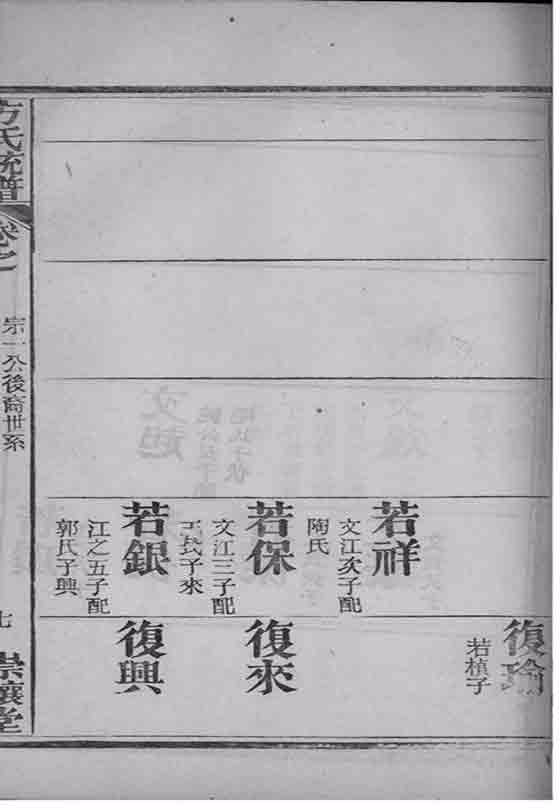 復瑜
若植子
若祥
文江次子配
陶氏
若保
文江三子配
王氏子來
復來
若銀
江之五子配
郭氏子興
復興
方氏統譜
卷之
宗一公後裔世系
七
崇讓堂